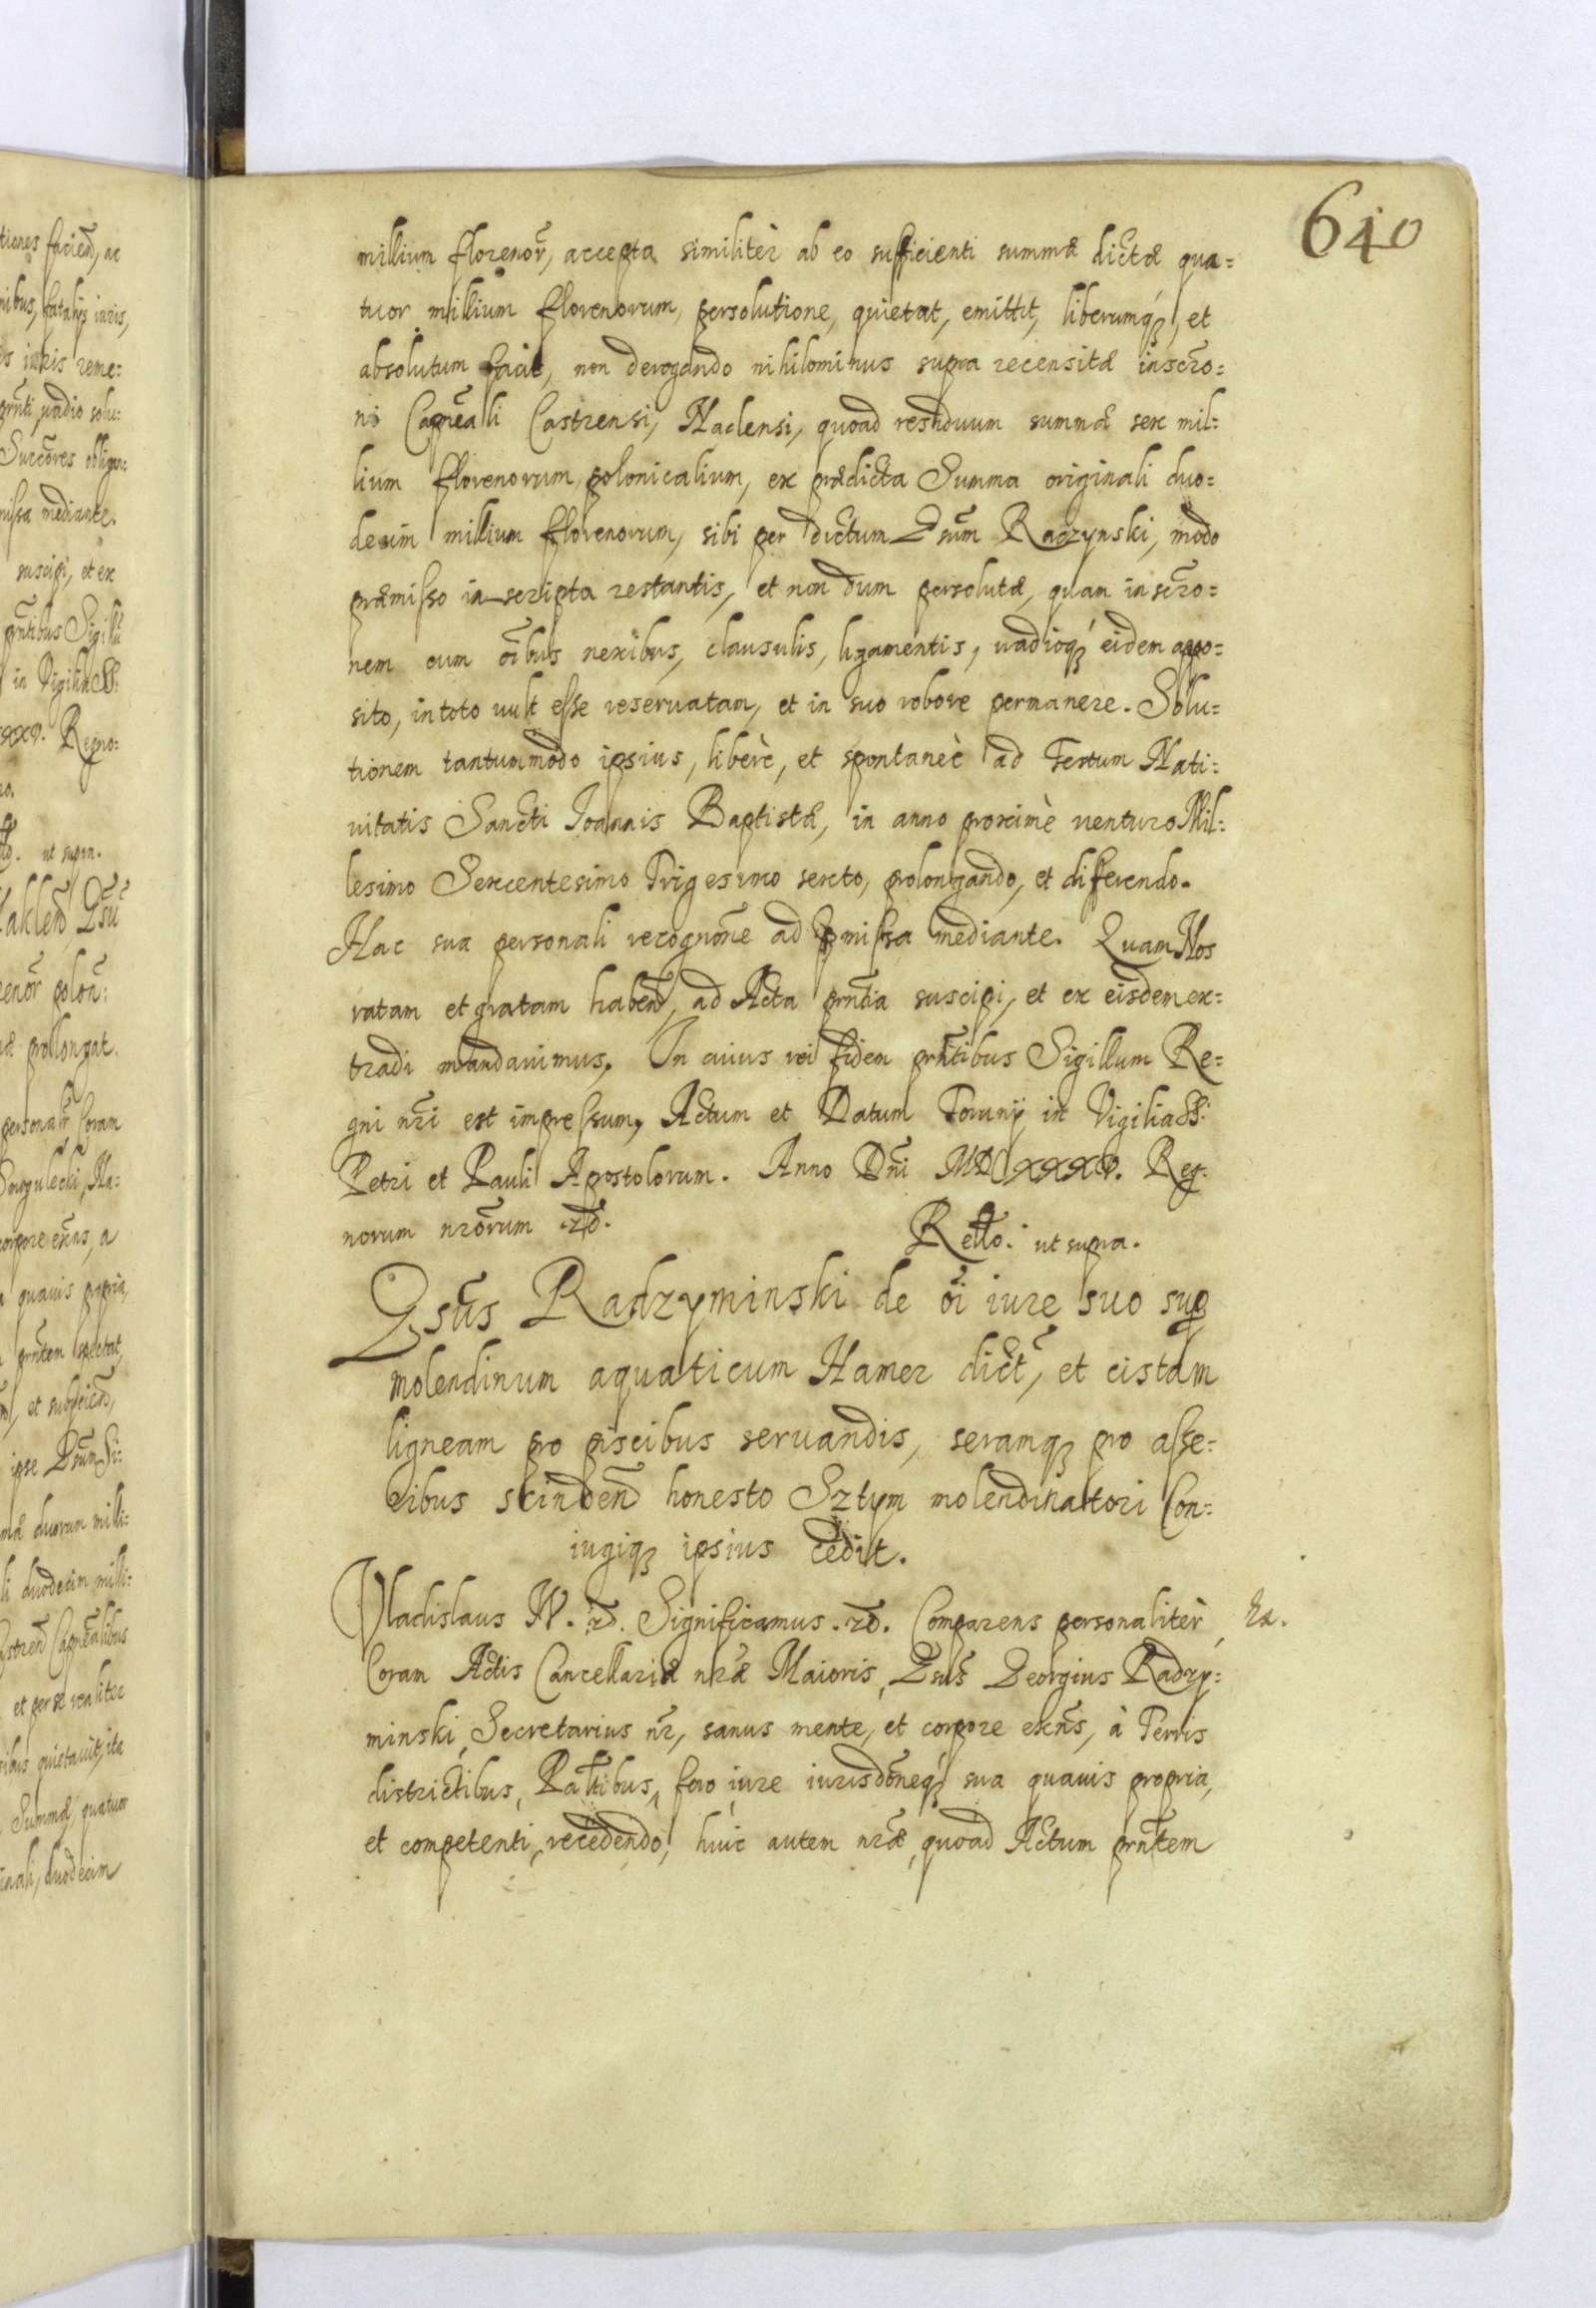 640
millium florenor̃, accepta similitèr ab eo sufficienti summæ dictæ qua=
tuor millium florenorum, persolutione, quietat, emittit, liberumq́ꝫ, et
absolutum facit, non derogando nihilominus supra recensitæ inscr̃o=
ni Capn̄eali Castrensi, Naclensi, quoad residuum summæ sex mil=
lium florenorum polonicalium, ex prædicta Summa originali duo=
decim millium florenorum, sibi per dictum Gsũm Raczynski, modo
præmisso inscripta restantis, et non dum persolutæ, quam inscr̃o=
nem cum õibus nexibus, clausulis, ligamentis, vadioq́ꝫ eidem appo=
sito, in toto uult esse reseruatam, et in suo robore permanere. Solu=
tionem tantummodo ipsius, liberè, et spontaneè ad Festum Nati=
uitatis Sancti Ioannis Baptistæ, in anno proximè venturo Mil=
lesimo Sexcentesimo Trigesimo sexto, prolongando, et differendo.
Hac sua personali recognõne ad p̃missa mediante. Quam Nos
ratam et gratam habeñ, ad Acta prñtia suscipi, et ex eisdem ex=
tradi mandauimus. In cuius rei fidem prñtibus Sigillum Re=
gni nr̃i est impressum, Actum et Datum Torunÿ in Vigilia SS:
Petri et Pauli Apostolorum. Anno Dñi MDCXXXV. Reg=
norum nrõrum ꝛc̃.
Rel̃lo. ut supra.
Gsũs Radzyminski de õi iure suo sup
molendinum aquaticum Hamer dict̃, et cistam
ligneam pro piscibus seruandis, seramqꝫ pro asse=
ribus scindeñ honesto Sztym molendinatori Con=
iugiqꝫ ipsius cedit.
Vladislaus IV. ꝛc̃. Significamus. ꝛc̃. Comparens personalitèr
Coram Actis Cancellariæ nr̃æ Maioris, Gsũs Georgius Radzy=
minski, Secretarius nr̃, sanus mente, et corpore exñs, à Terris
districtibus, Pal̃tibus, foro iure iurisdõneq́ꝫ sua quauis propria,
et competenti, recedendo, huic autem nr̃æ, quoad Actum prñtem